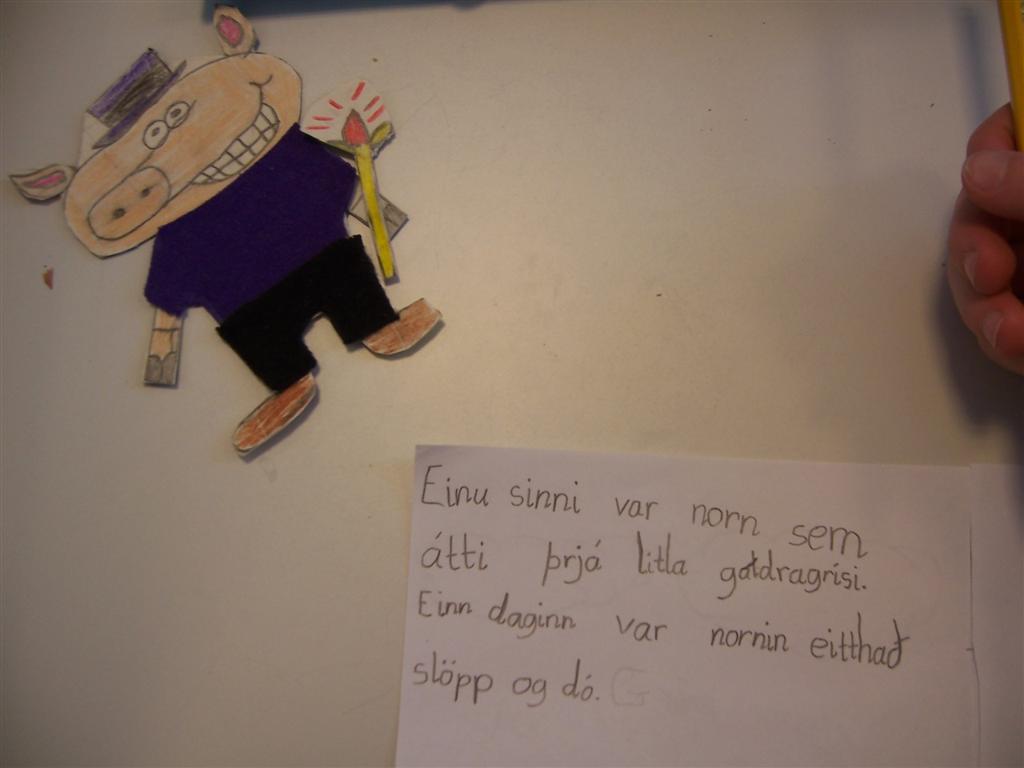 Einu sinni var norn sem
átti þrjá litla galdragrísi.
Einn daginn var nornin eitthað
slöpp og dó. G